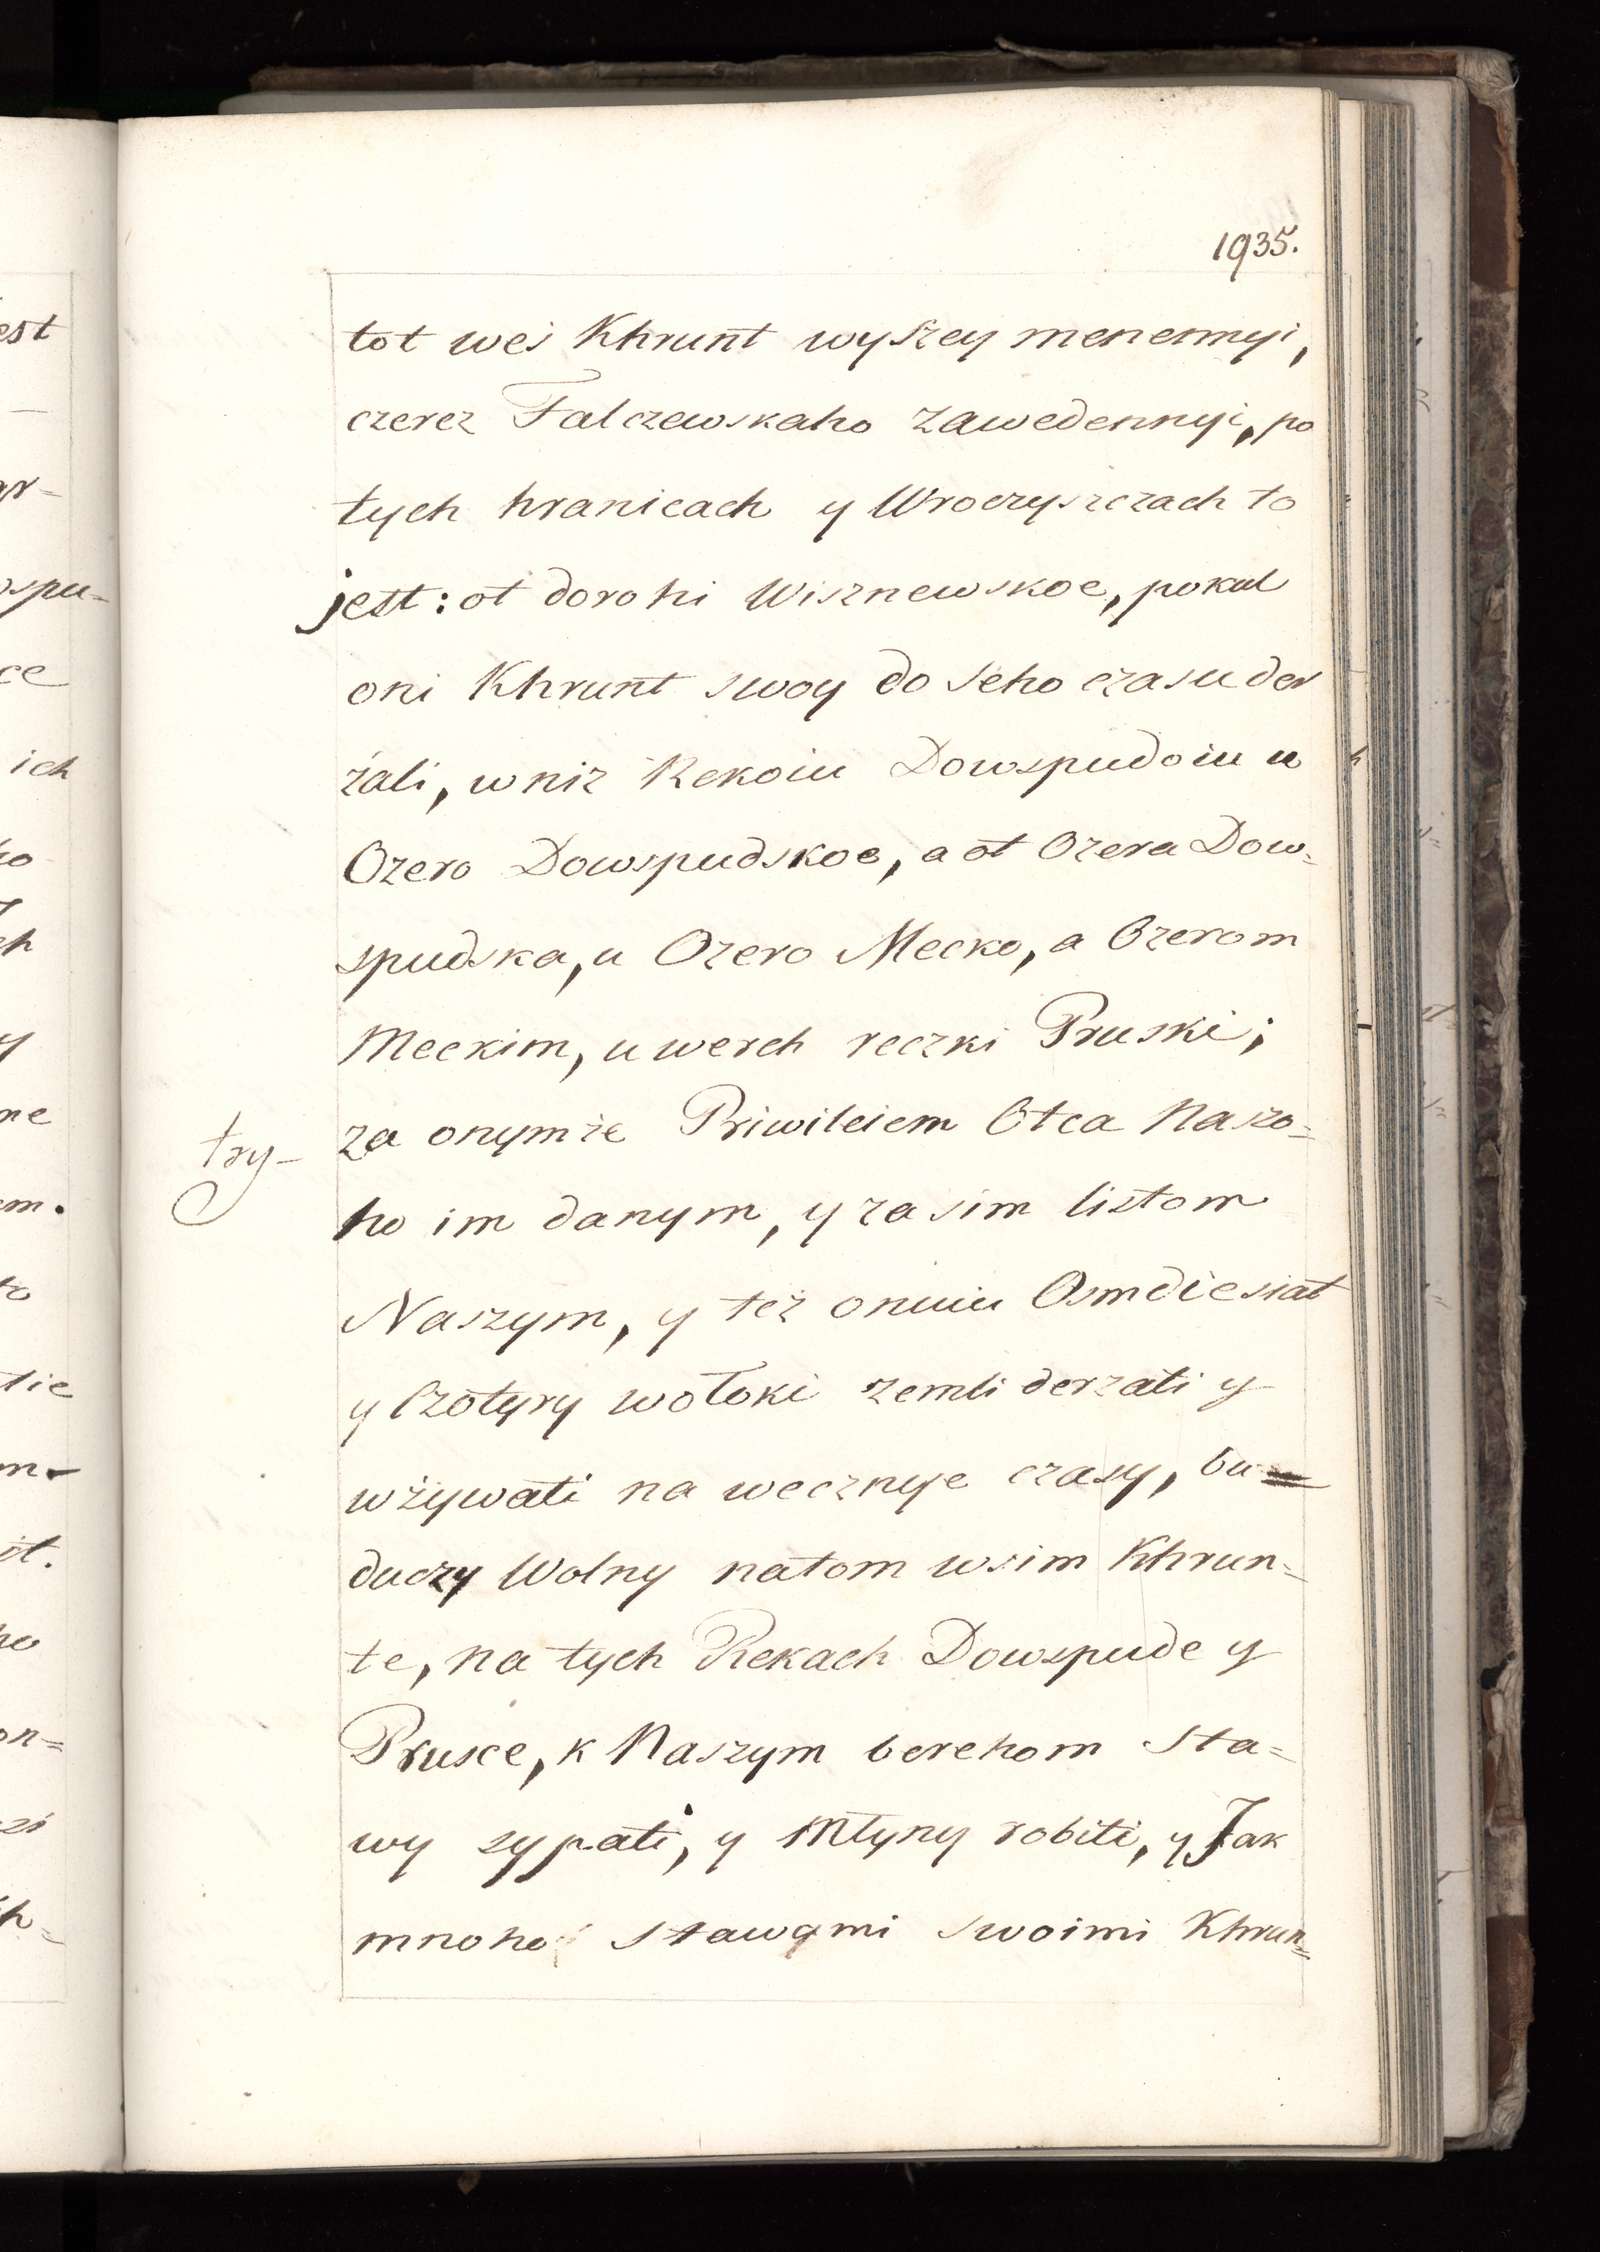 1935.
tot weś Khrunt wyszey menennyi,
czerez Falczewskaho zawedennyi, po
tych hranicach y Wroczyszczach to
jest: ot dorohi Wisznewskoe, pokul
oni Khrunt swoy do seho czasu der
żali, w niz Rekoiu Dowspudoiu u
Ozero Dowspudskoe, a ot Ozera Dow-
spudska, u Ozero Mecko, a Ozerom
Meckim, u werch reczki Pruski;
za onymże Priwileiem Otca Naszo-
try-
ho im danym, y za sim listom
Naszym, y też onuiu Osmdiesiat
y Czotyry wołoki zemli derzati y
wżywati na wecznyje czasy, bu-
duczy Wolny natom wsim Khrun-
te, na tych Rekach Dowspude y
Prusce, k Naszym berehom Sta-
wy sypati, y Młyny robiti, y Jak
mnoho stawami swoimi Khrun-
est
ar-
ospu-
ce
ich
ho
ch
y
ne
em.
to
tie
m-
it.
ho
on-
zi